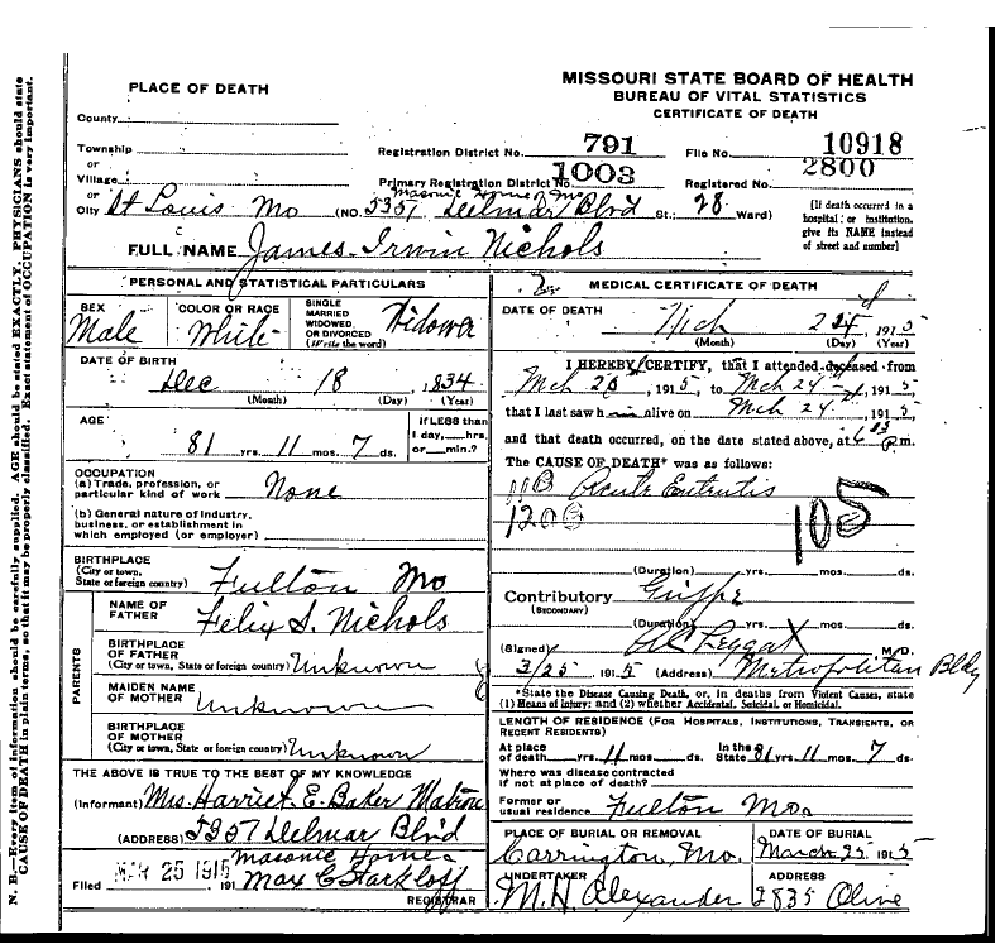 MISSOURI STATE BOARD OF HEALTH
BUREAU OF VITAL STATISTICS
CERTIFICATE OF DEATH
PLACE OF DEATH
County
Township
or
Village
or
City St Louis Mo (NO. 5351 Delmar Blvd St.; 28 Ward)
Masonic Home of Mo
Registration District No. 791
File No. 10918
Primary Registration District No. 1003
Registered No. 2800
(If death occurred in a
hospital or institution,
give its NAME instead
of street and number)
FULL NAME James Irwin Nichols
PERSONAL AND STATISTICAL PARTICULARS
SEX
Male
COLOR OR RACE
White
SINGLE
MARRIED
WIDOWED
OR DIVORCED
(Write the word)
Widower
DATE OF BIRTH
Dec 18 1834
(Month) (Day) (Year)
AGE
81 yrs. 11 mos. 7 ds.
If LESS than
1 day, hrs.
or min.?
OCCUPATION
(a) Trade, profession, or
particular kind of work None
(b) General nature of industry,
business, or establishment in
which employed (or employer)
BIRTHPLACE
(City or town,
State or foreign country) Fulton Mo
PARENTS
NAME OF
FATHER Felix S. Nichols
BIRTHPLACE
OF FATHER
(City or town, State or foreign country) Unknown
MAIDEN NAME
OF MOTHER Unknown
BIRTHPLACE
OF MOTHER
(City or town, State or foreign country) Unknown
THE ABOVE IS TRUE TO THE BEST OF MY KNOWLEDGE
(Informant) Mrs. Harriet E. Baker Matron
(ADDRESS) 5357 Delmar Blvd
Masonic Home
Filed MAR 25 1915, 191 Max C Starkloff
REGISTRAR
MEDICAL CERTIFICATE OF DEATH
DATE OF DEATH
Mch 24, 1915
(Month) (Day) (Year)
I HEREBY CERTIFY, that I attended deceased from
Mch 20, 1915, to Mch 24, 1915
that I last saw h alive on Mch 24, 1915
and that death occurred, on the date stated above, at 6 P m.
The CAUSE OF DEATH* was as follows:
Acute Enteritis
105
(Duration) yrs. mos. ds.
Contributory Grippe
(SECONDARY)
(Duration) yrs. mos. ds.
(Signed) Leggat M.D.
3/25 1915 (Address) Metropolitan Bldg
*State the Disease Causing Death, or, in deaths from Violent Causes, state
(1) Means of Injury; and (2) whether Accidental, Suicidal, or Homicidal.
LENGTH OF RESIDENCE (FOR HOSPITALS, INSTITUTIONS, TRANSIENTS, OR
RECENT RESIDENTS)
At place
of death yrs. 11 mos. ds.
In the
State 81 yrs. 11 mos. 7 ds.
Where was disease contracted
if not at place of death?
Former or
usual residence Fulton Mo.
PLACE OF BURIAL OR REMOVAL
Carrington, Mo.
DATE OF BURIAL
March 25 1915
UNDERTAKER
M.H. Alexander
ADDRESS
2835 Olive
N. B.—Every item of information should be carefully supplied. AGE should be stated EXACTLY. PHYSICIANS should state
CAUSE OF DEATH in plain terms, so that it may be properly classified. Exact statement of OCCUPATION is very important.